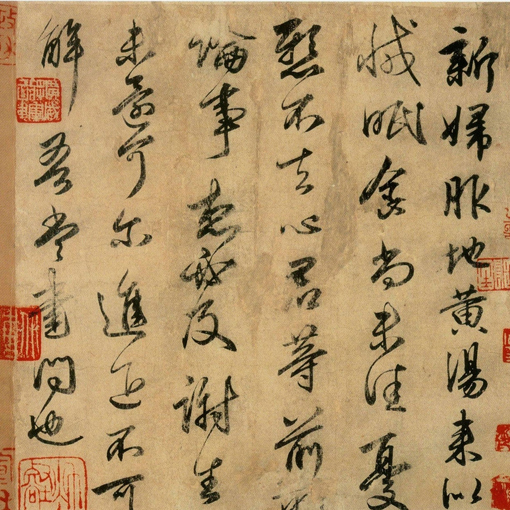 新婦服地黃湯來似
減眠食尚未佳憂
懸不去心君等前
論事想必及謝生
未還可爾進退不可
解吾當書問也